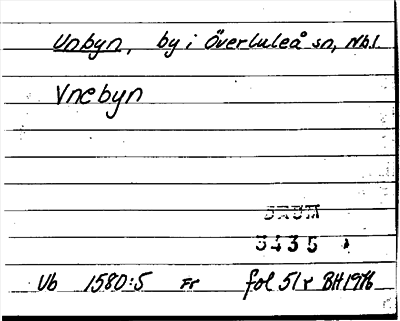 Unbyn, by i Överluleå sn, Nbl.
Vnebyn
DAUM
3435
Ub 1580:5 Fr fol 51r BH 1976